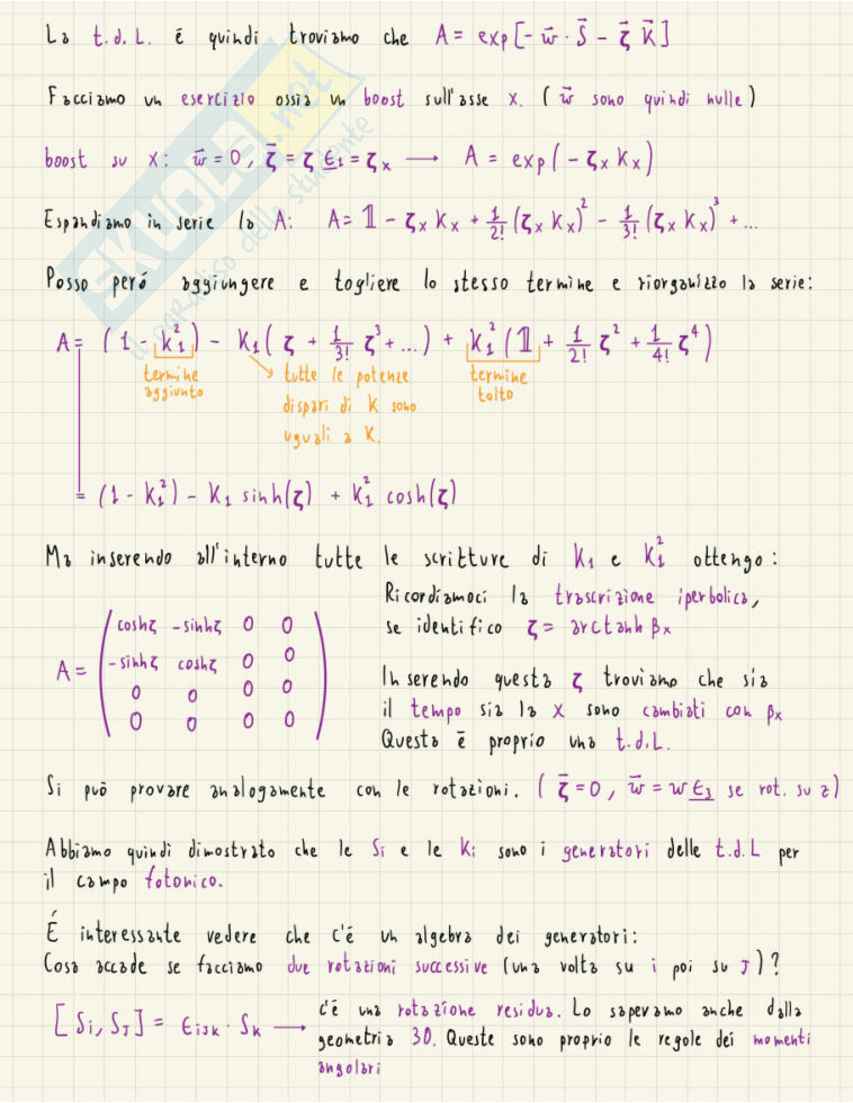 La t.d.L. é quindi troviamo che A = exp[- w⃗ · S⃗ - ζ⃗ K⃗]
Facciamo un esercizio ossia un boost sull'asse x. (w⃗ sono quindi nulle)
boost su x: w⃗ = 0, ζ⃗ = ζ ε₁ = ζₓ → A = exp(- ζₓ Kₓ)
Espandiamo in serie la A: A = 𝟙 - ζₓ Kₓ + 1/2! (ζₓ Kₓ)² - 1/3! (ζₓ Kₓ)³ + ...
Posso peró aggiungere e togliere lo stesso termine e riorganizzo la serie:
A = (1 - K₁²) - K₁(ζ + 1/3! ζ³ + ...) + K₁²(𝟙 + 1/2! ζ² + 1/4! ζ⁴)
termine aggiunto
tutte le potenze
dispari di K sono
uguali a K.
termine tolto
= (1 - K₁²) - K₁ sinh(ζ) + K₁² cosh(ζ)
Ma inserendo all'interno tutte le scritture di K₁ e K₁² ottengo:
A =
coshζ -sinhζ 0 0
-sinhζ coshζ 0 0
0 0 0 0
0 0 0 0
Ricordiamoci la trascrizione iperbolica,
se identifico ζ = arctanh βx
Inserendo questa ζ troviamo che sia
il tempo sia la x sono cambiati con βx
Questa é proprio una t.d.L.
Si può provare analogamente con le rotazioni. (ζ⃗ = 0, w⃗ = w ε₃ se rot. su z)
Abbiamo quindi dimostrato che le Si e le Ki sono i generatori delle t.d.L per
il campo fotonico.
É interessante vedere che c'é un algebra dei generatori:
Cosa accade se facciamo due rotazioni successive (una volta su i poi su J)?
[Si, SJ] = εiJK · SK →
c'é una rotazione residua. Lo sapevamo anche dalla
geometria 3D. Queste sono proprio le regole dei momenti
angolari
SKUOLA.net
il paradiso dello studente